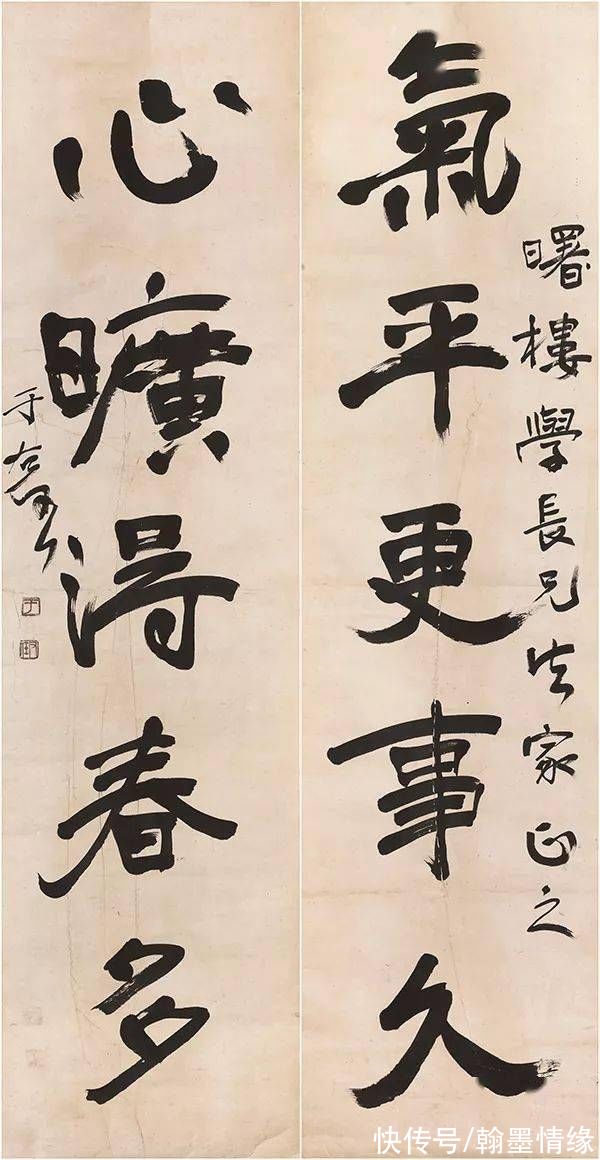 氣平更事久
曙樓學長兄法家正之
心曠得春多
于右任
快传号/翰墨情缘